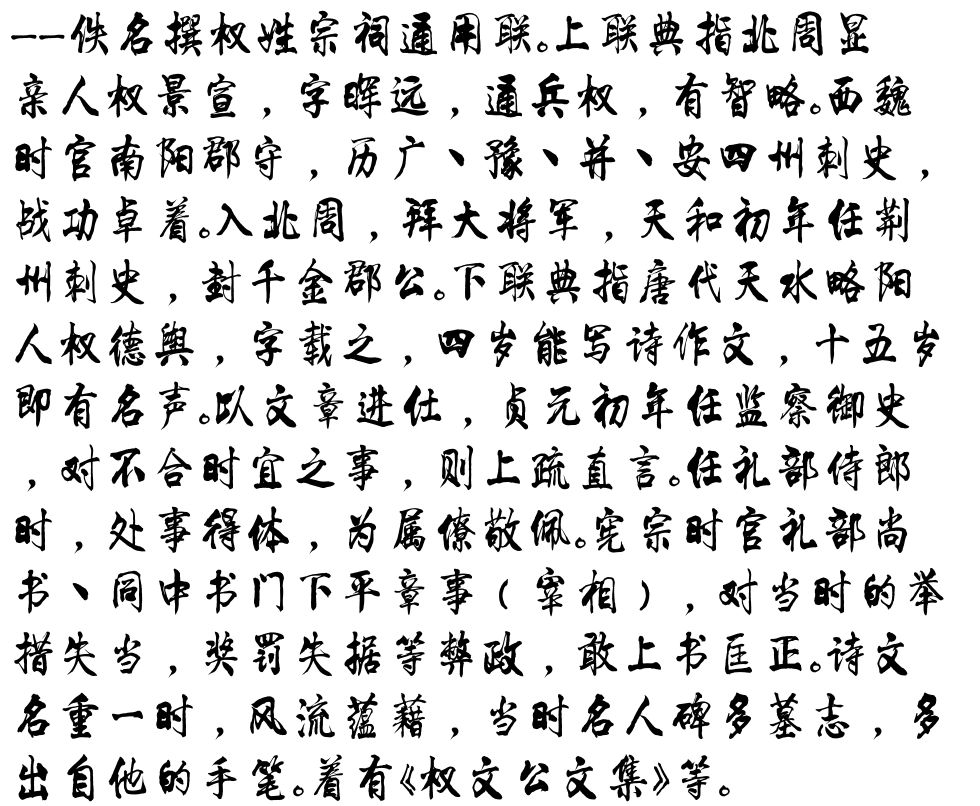 ——佚名撰权姓宗祠通用联。上联典指北周显
亲人权景宣，字晖远，通兵权，有智略。西魏
时官南阳郡守，历广、豫、并、安四州刺史，
战功卓着。入北周，拜大将军，天和初年任荆
州刺史，封千金郡公。下联典指唐代天水略阳
人权德舆，字载之，四岁能写诗作文，十五岁
即有名声。以文章进仕，贞元初年任监察御史
，对不合时宜之事，则上疏直言。任礼部侍郎
时，处事得体，为属僚敬佩。宪宗时官礼部尚
书、同中书门下平章事（宰相），对当时的举
措失当，奖罚失据等弊政，敢上书匡正。诗文
名重一时，风流蕴藉，当时名人碑多墓志，多
出自他的手笔。着有《权文公文集》等。